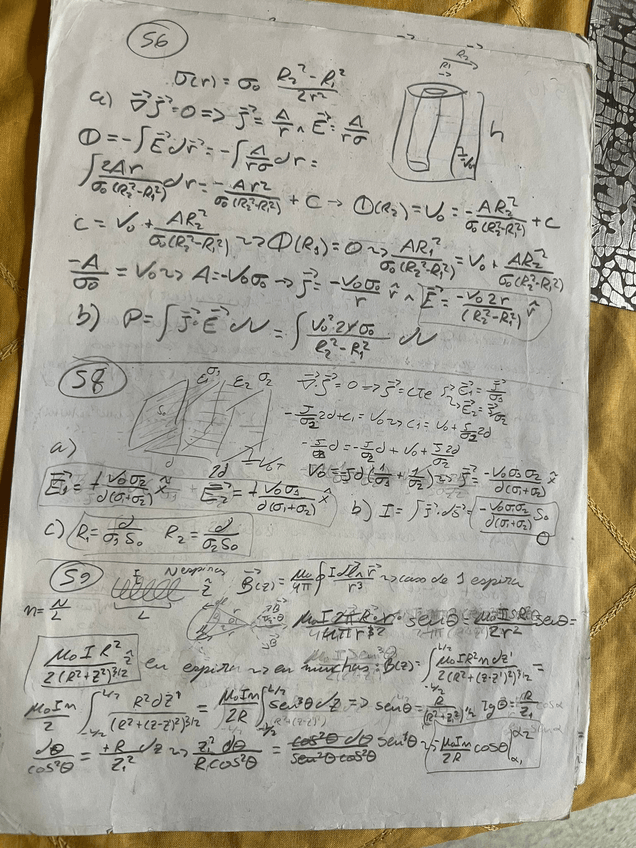 56
σ(r) = σ₀ (R₂² - R₁²)/(2r²)
R₂
R₁
a) ∇⃗ J⃗ = 0 => J⃗ = A/r ∧ E⃗ = A/(rσ)
h
Φ = -∫E⃗ dr⃗ = -∫ A/(rσ) dr =
∫ 2Ar/(σ₀(R₂²-R₁²)) dr = -Ar²/(σ₀(R₂²-R₁²)) + C → Φ(R₂) = V₀ = -AR₂²/(σ₀(R₂²-R₁²)) + C
C = V₀ + AR₂²/(σ₀(R₂²-R₁²)) ⇝ Φ(R₁) = 0 ⇝ AR₁²/(σ₀(R₂²-R₁²)) = V₀ + AR₂²/(σ₀(R₂²-R₁²))
-A/σ₀ = V₀ ⇝ A = -V₀σ₀ → J⃗ = -V₀σ₀/r r̂ ∧ E⃗ = -V₀2r/(R₂²-R₁²) r̂
b) P = ∫ J⃗·E⃗ dV = ∫ V₀² 2r σ₀/(R₂²-R₁²) dV
58
S₀ ε₁ σ₁ ε₂ σ₂
d 2d
∇⃗·J⃗ = 0 => J⃗ = cte ⇝ E⃗₁ = J⃗/σ₁
⇝ E⃗₂ = J⃗/σ₂
-J/σ₂ 2d + C₁ = V₀ ⇝ C₁ = V₀ + J/σ₂ 2d
-J/σ₁ d = -J/σ₂ d + V₀ + J2d/σ₂
a)
E⃗₁ = + V₀σ₂/(d(σ₁+σ₂)) x̂ E⃗₂ = + V₀σ₁/(d(σ₁+σ₂)) x̂
J⃗ = -V₀σ₁σ₂/(d(σ₁+σ₂)) x̂
b) I = ∫J⃗·dS⃗ = -V₀σ₁σ₂/(d(σ₁+σ₂)) S₀
c) R₁ = d/(σ₁S₀) R₂ = d/(σ₂S₀)
59
I N espiras ẑ
L
n = N/L
B⃗(z) = μ₀/4π ∮ I dl⃗ ∧ r⃗/r³ ⇝ caso de 1 espira
μ₀ I 2πR·r/(4π r³) senθ = μ₀ I R/(2r²) senθ =
μ₀ I R² ẑ/(2(R²+z²)^3/2) en espira ⇝ en muchas: B(z) = ∫_{-L/2}^{L/2} μ₀IR²n dz'/(2(R²+(z-z')²)^3/2) =
μ₀In/2 ∫_{-L/2}^{L/2} R²dz'/(R²+(z-z')²)^3/2 = μ₀In/2R ∫_{-L/2}^{L/2} sen³θ dz => senθ = R/(R²+z₁²)^1/2 Tgθ = R/z₁
dθ/cos²θ = +R/z₁² dz ⇝ z₁² dθ/(R cos²θ) = cos²θ dθ/(sen²θ cos²θ) sen³θ ⇝ μ₀In/2R cosθ |_{α₁}^{α₂}